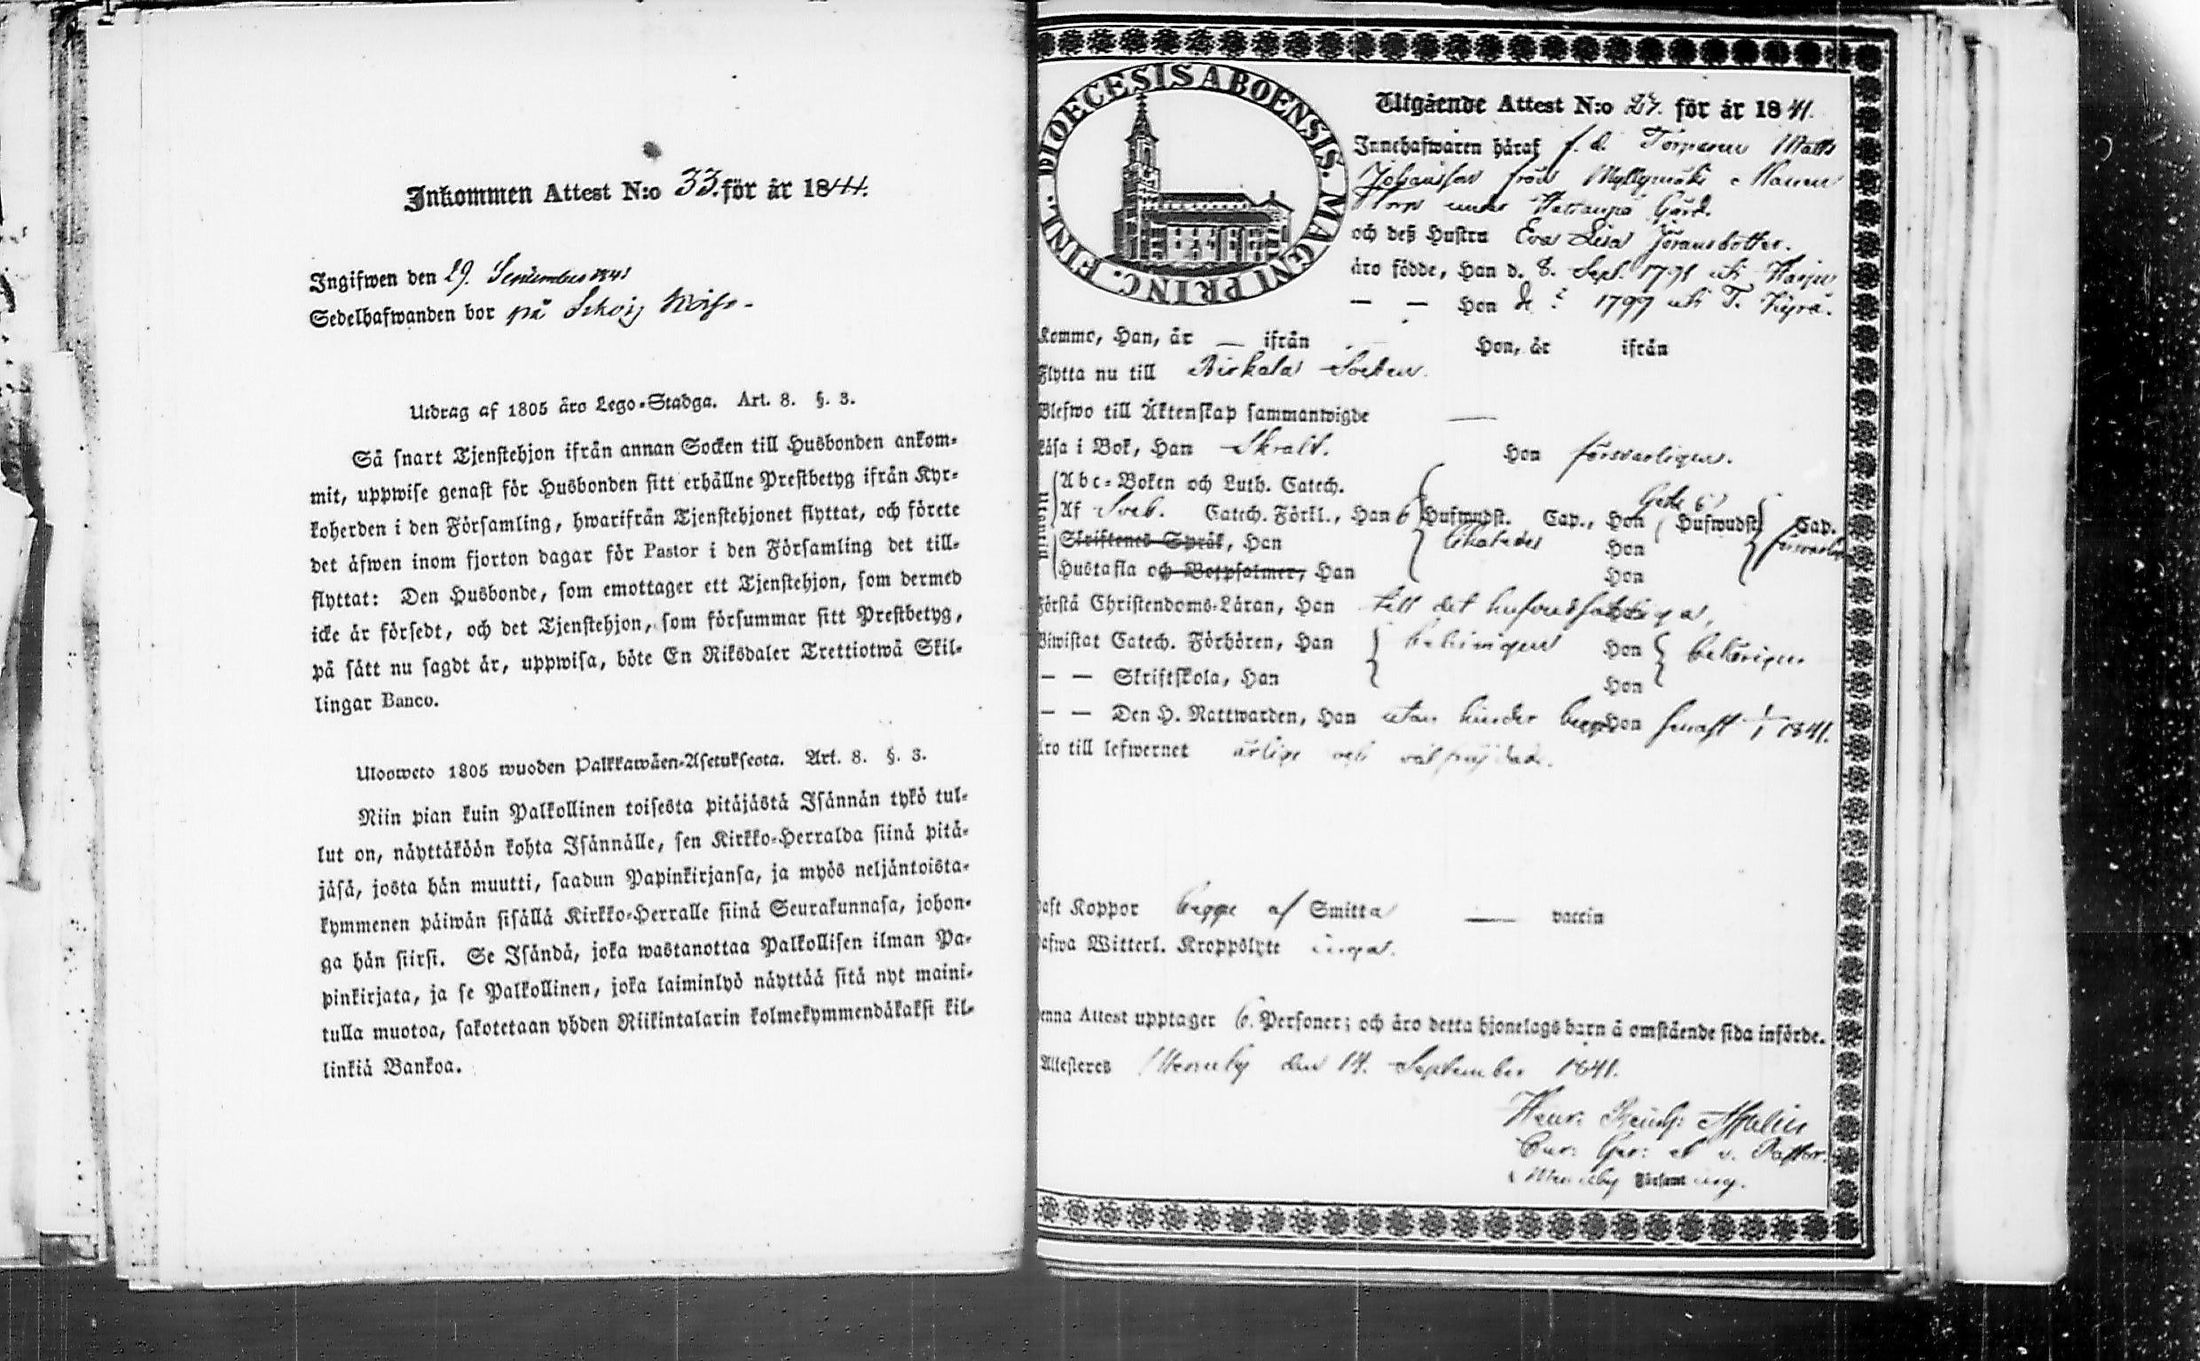 Inkommen Attest N:o 33. för år 1841.
Ingifwen den 29. September 1841
Sedelhafwanden bor på
Utdrag af 1805 åro Lego-Stadga. Art. 8. §. 3.
Så snart Tjenstehjon ifrån annan Socken till Husbonden ankom-
mit, uppwise genast för Husbonden sitt erhållne Prestbetyg ifrån Kyr-
koherden i den Församling, hwarifrån Tjenstehjonet flyttat, och förete
det äfwen inom fjorton dagar för Pastor i den Församling det till-
flyttat: Den Husbonde, som emottager ett Tjenstehjon, som dermed
icke är försedt, och det Tjenstehjon, som försummar sitt Prestbetyg,
på sätt nu sagdt är, uppwisa, böte En Riksdaler Trettiotwå Skil-
lingar Banco.
Uloosweto 1805 wuoden Palkkawäen-Asetuksesta. Art. 8. §. 3.
Niin pian kuin Palkollinen toisesta pitäjästä Isännän tykö tul-
lut on, näyttäköön kohta Isännälle, sen Kirkko-Herralda siinä pitä-
jäsä, josta hän muutti, saadun Papinkirjansa, ja myös neljäntoista-
kymmenen päiwän sisällä Kirkko-Herralle siinä Seurakunnasa, johon-
ga hän siirsi. Se Isändä, joka wastanottaa Palkollisen ilman Pa-
pinkirjata, ja se Palkollinen, joka laiminlyö näyttää sitä nyt maini-
tulla muotoa, sakotetaan yhden Riikintalarin kolmekymmendäkaksi kil-
linkiä Bankoa.
DIOECESIS ABOENSIS. MAGNI PRINC. FINL.
Utgående Attest N:o 27. för år 1841.
Innehafwaren häraf f. d. Torparen Matts
Johansson från Myllymäki
torp under Gård.
och deß Hustru Eva Lisa Jöransdotter.
äro födde, Han d. 8. Sept. 1791 uti
— — Hon d. 1797 uti T. Kyrö.
Komne, Han, år — ifrån — Hon, år ifrån
Flytta nu till Birkala Socken.
Blefwo till Äktenskap sammanwigde —
Läsa i Bok, Han Svalt. Hon försvarligen.
Abc-Boken och Luth. Catech.
Af Sveb. Catech. Förkl., Han 6 Hufwudst. Cap., Hon Hufwudst. Cap.
Skriftenes Språk, Han Hon
Hustafla och Botpsalmer, Han Hon
Förstå Christendoms-Läran, Han till det hufvudsakliga,
Biwistat Catech. Förhören, Han behörigen Hon behörigen
— — Skriftskola, Han Hon
— — Den H. Nattwarden, Han utan hinder begge Hon senast 1841.
Äro till lefwernet ärlige och välfräjdade.
Haft Koppor begge af Smitta — vaccin
Hafwa Witterl. Kroppslyte inga.
Denna Attest upptager 6. Personer; och äro detta hjonelags barn å omstående sida införde.
Attesteres den 14. September 1841.
Pastor.
Församling.